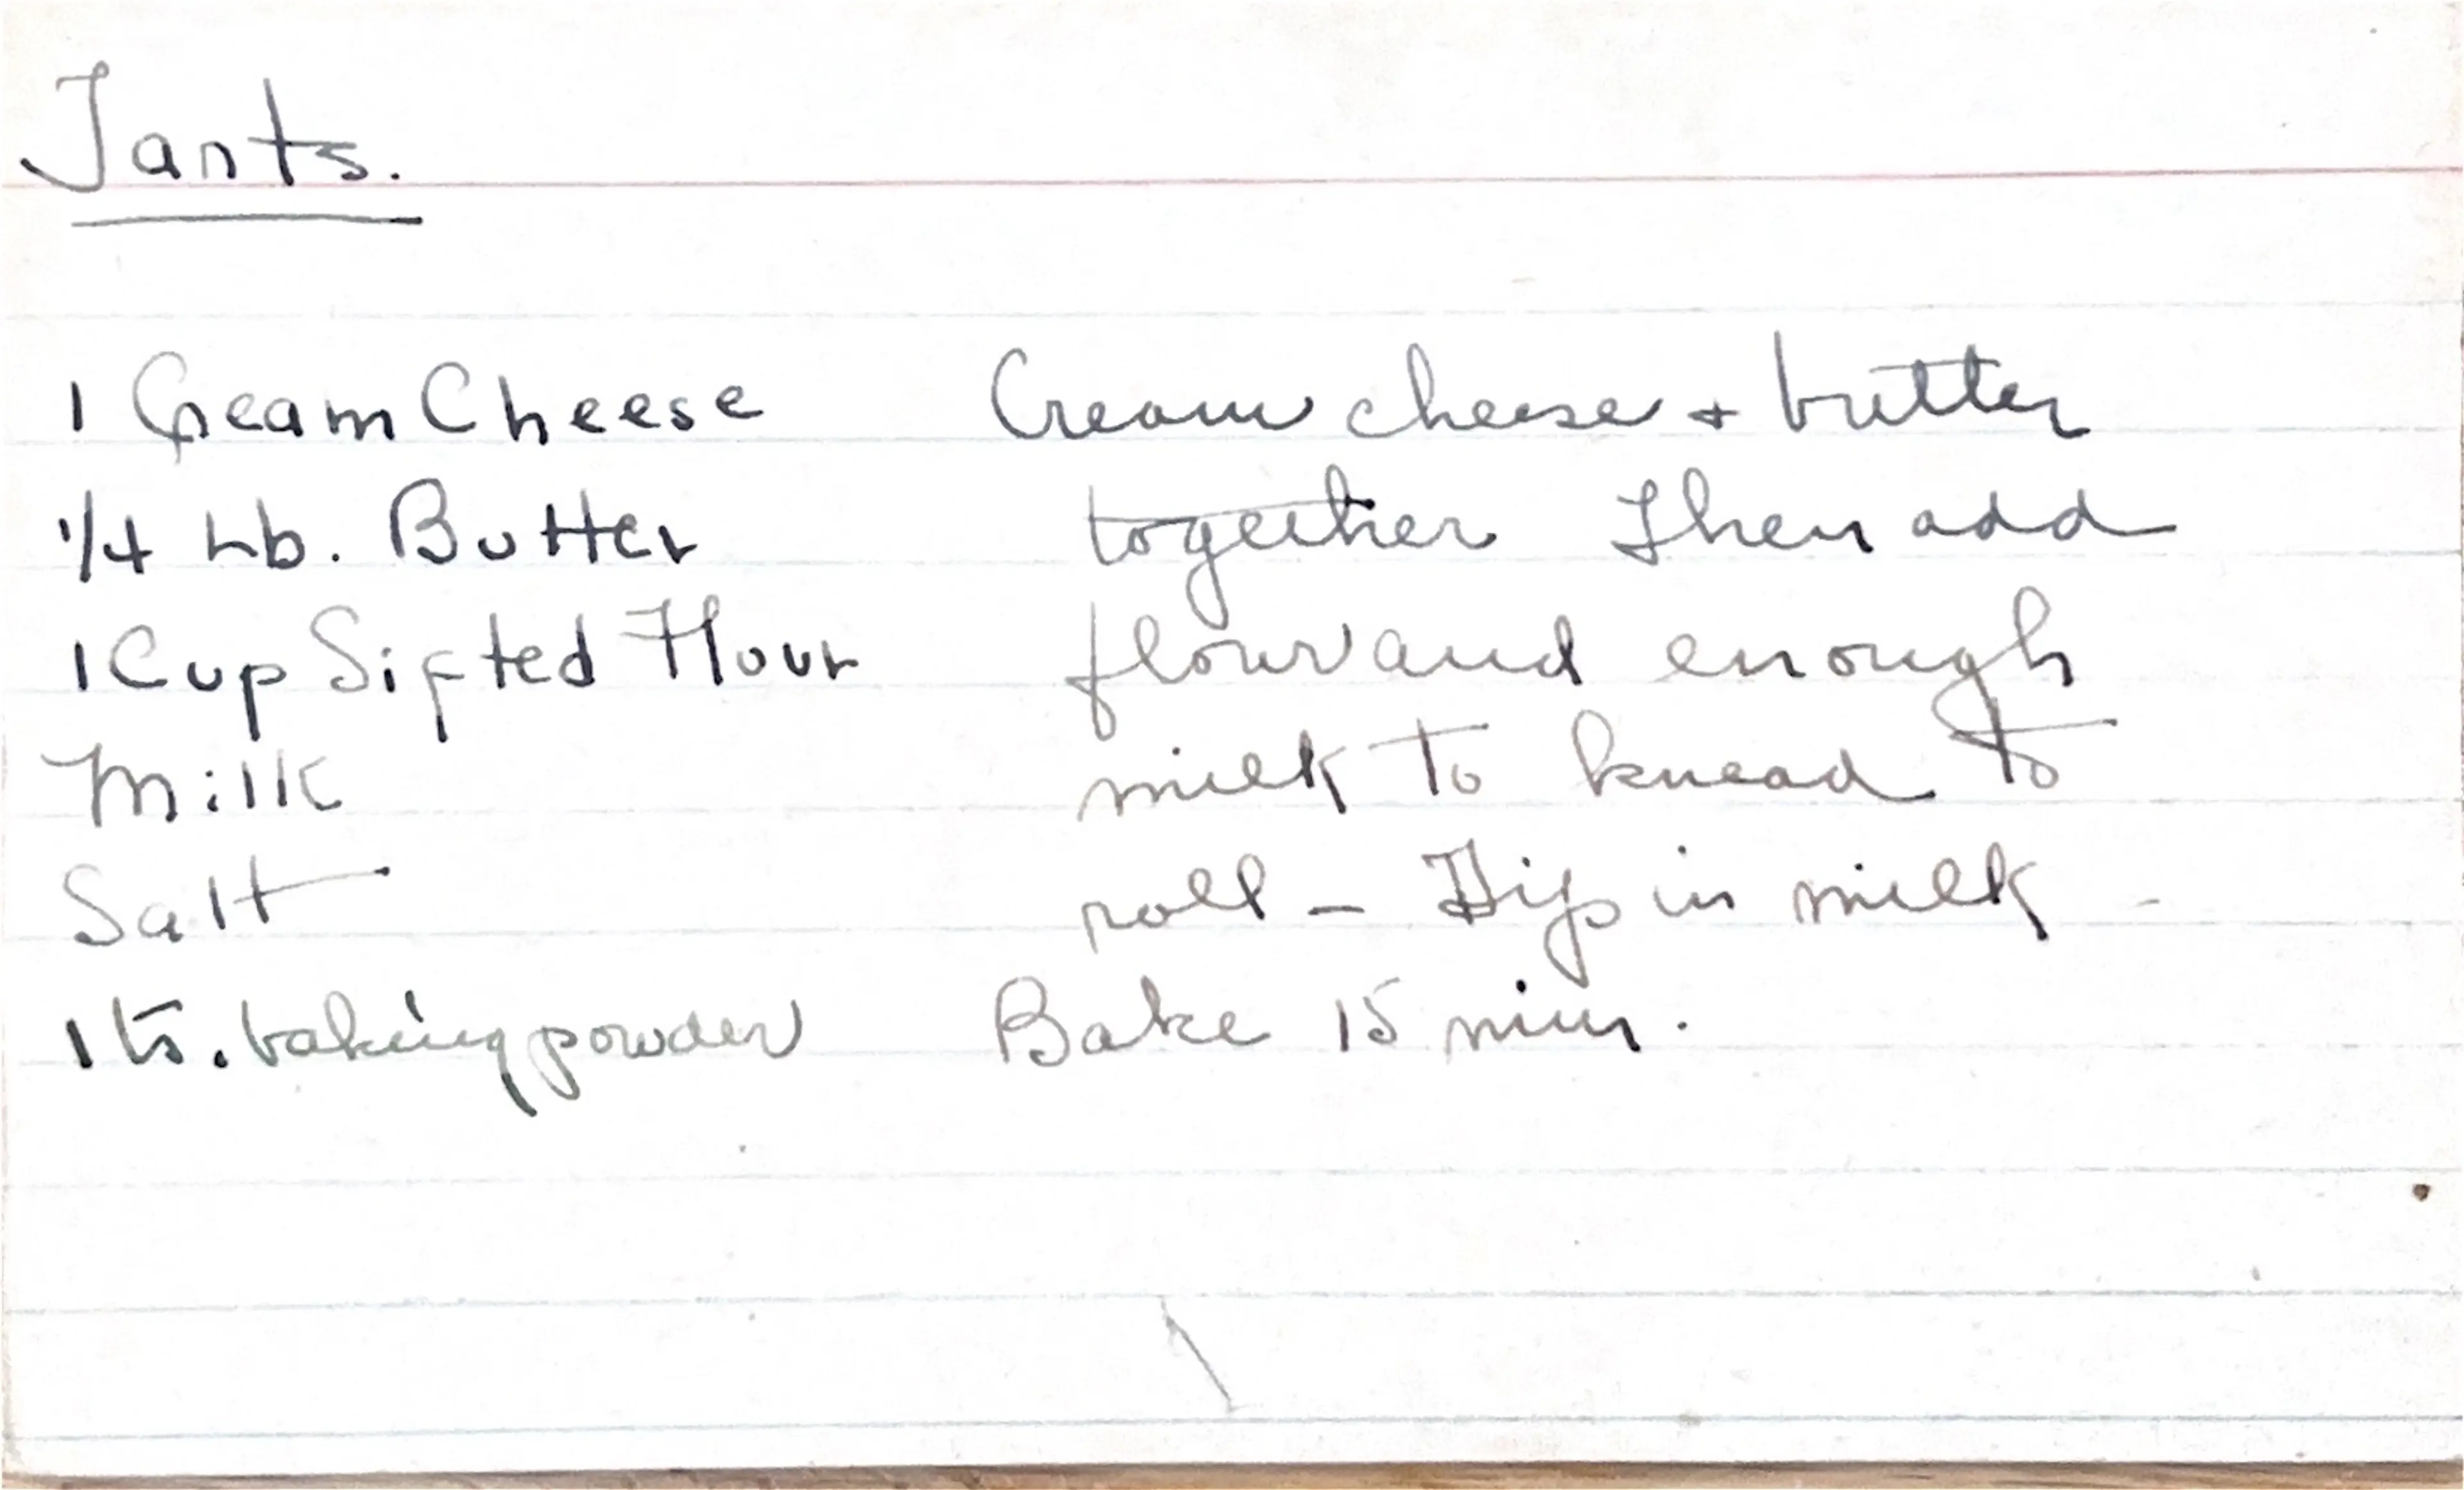 Jants.
1 Cream Cheese
1/4 Lb. Butter
1 Cup Sifted Flour
Milk
Salt
1 ts. baking powder
Cream cheese + butter
together Then add
flour and enough
milk to knead to
roll – Dip in milk -
Bake 15 min.